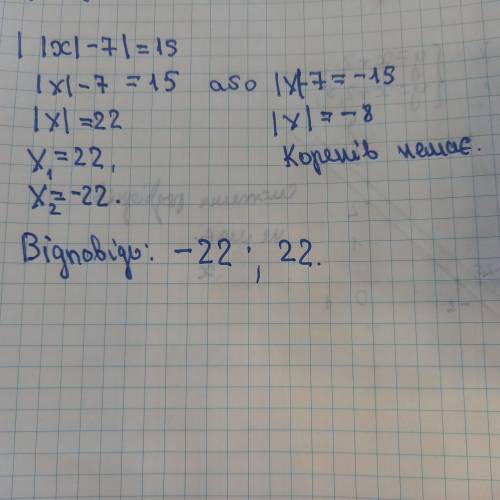 | |x| - 7 | = 15
|x| - 7 = 15 або |x| - 7 = -15
|x| = 22 |x| = -8
x₁ = 22, Коренів немає.
x₂ = -22.
Відповідь: -22 ; 22.